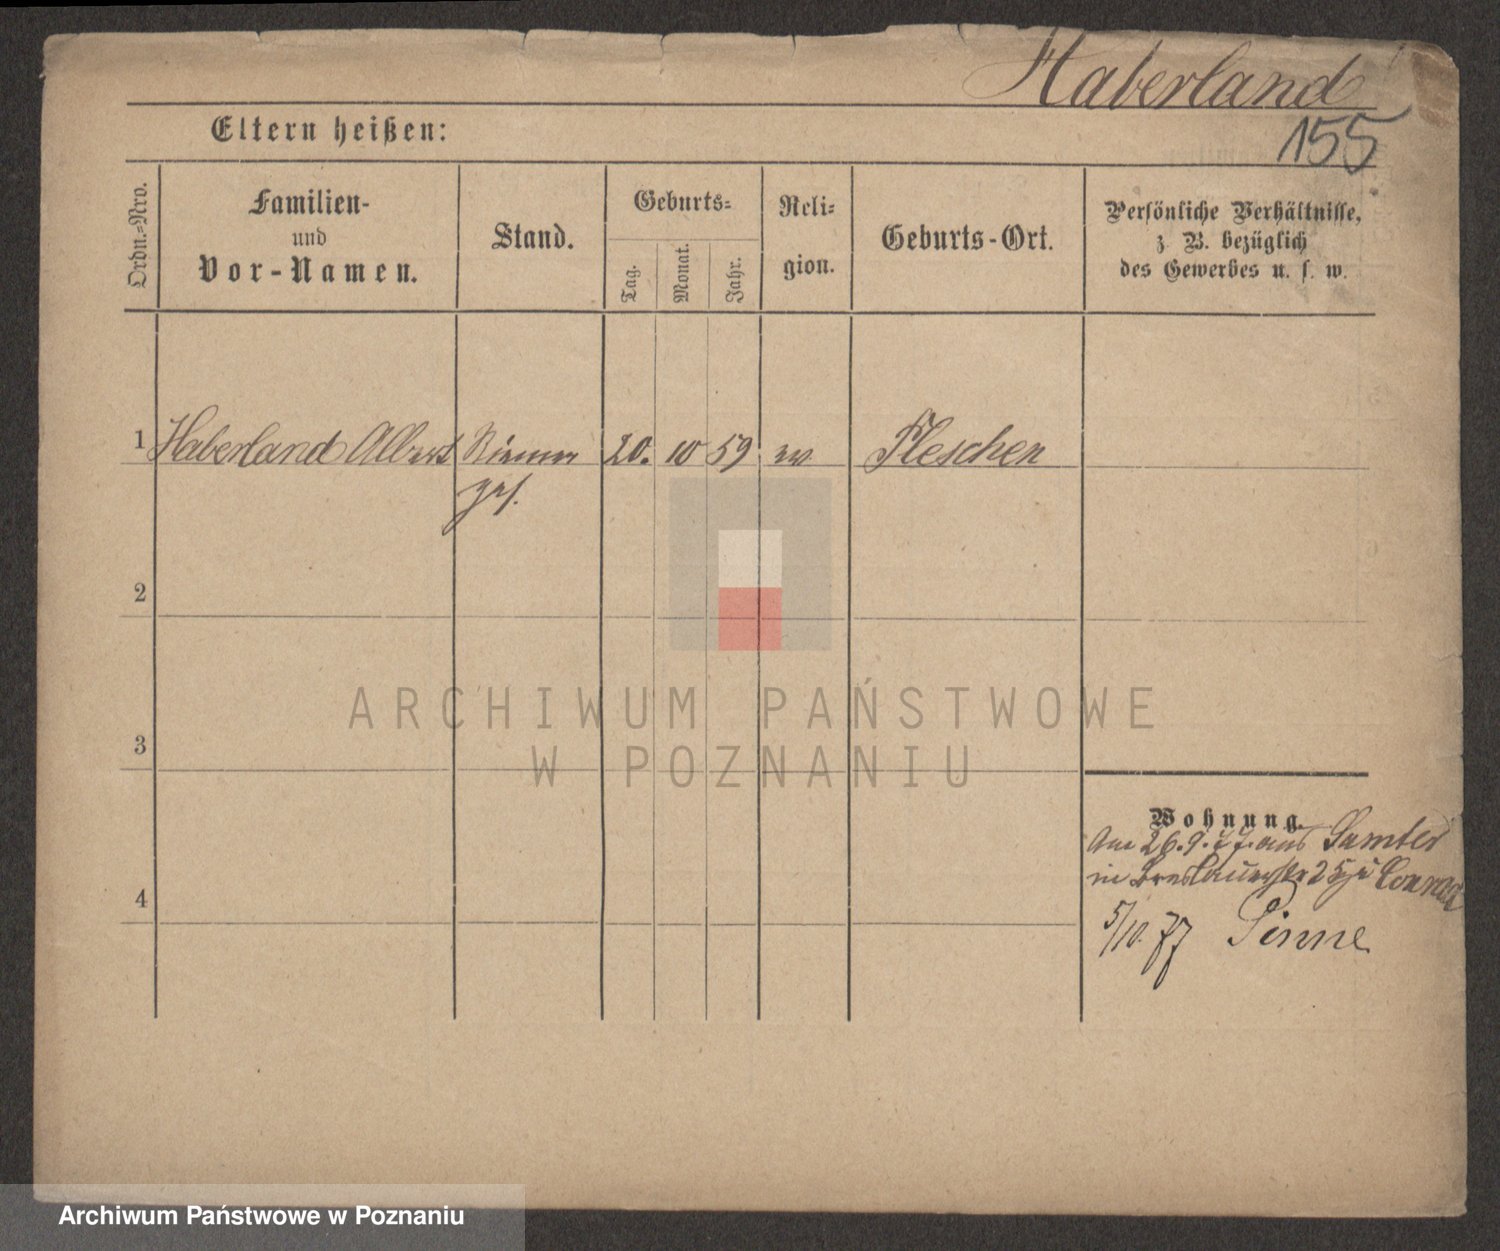 Haberland
155
Eltern heißen:
Ordn.=Nro.
Familien-
und
Vor-Namen.
Stand.
Geburts=
Tag.
Monat.
Jahr.
Reli=
gion.
Geburts-Ort.
Persönliche Verhältnisse,
z. B. bezüglich
des Gewerbes u. s. w.
1 Haberland Albert Riemer 20. 10 59 ev Pleschen
ges.
2
3
4
Wohnung.
Am 26.9.77. aus Samter
in Breslauerstr 25 zu Conrad
5/10. 77 Sinne
ARCHIWUM PAŃSTWOWE
W POZNANIU
Archiwum Państwowe w Poznaniu